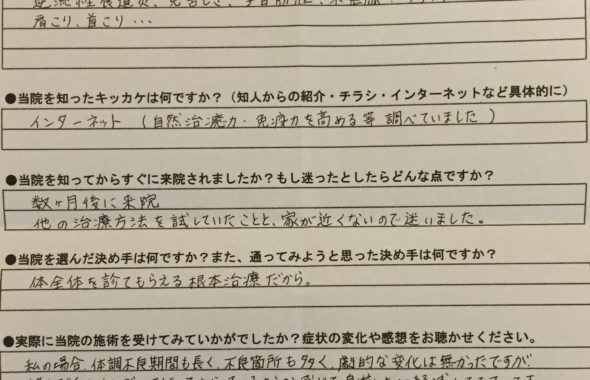 逆流性食道炎、息苦しさ、
肩こり、首こり・・・
●当院を知ったキッカケは何ですか?(知人からの紹介・チラシ・インターネットなど具体的に)
インターネット (自然治癒力・免疫力を高める等 調べていました)
●当院を知ってからすぐに来院されましたか?もし迷ったとしたらどんな点ですか?
数ヶ月後に来院
他の治療方法を試していたことと、家が近くないので迷いました。
●当院を選んだ決め手は何ですか?また、通ってみようと思った決め手は何ですか?
体全体を診てもらえる根本治療だから。
●実際に当院の施術を受けてみていかがでしたか?症状の変化や感想をお聴かせください。
私の場合、体調不良期間も長く、不良箇所も多く、劇的な変化は無かったですが